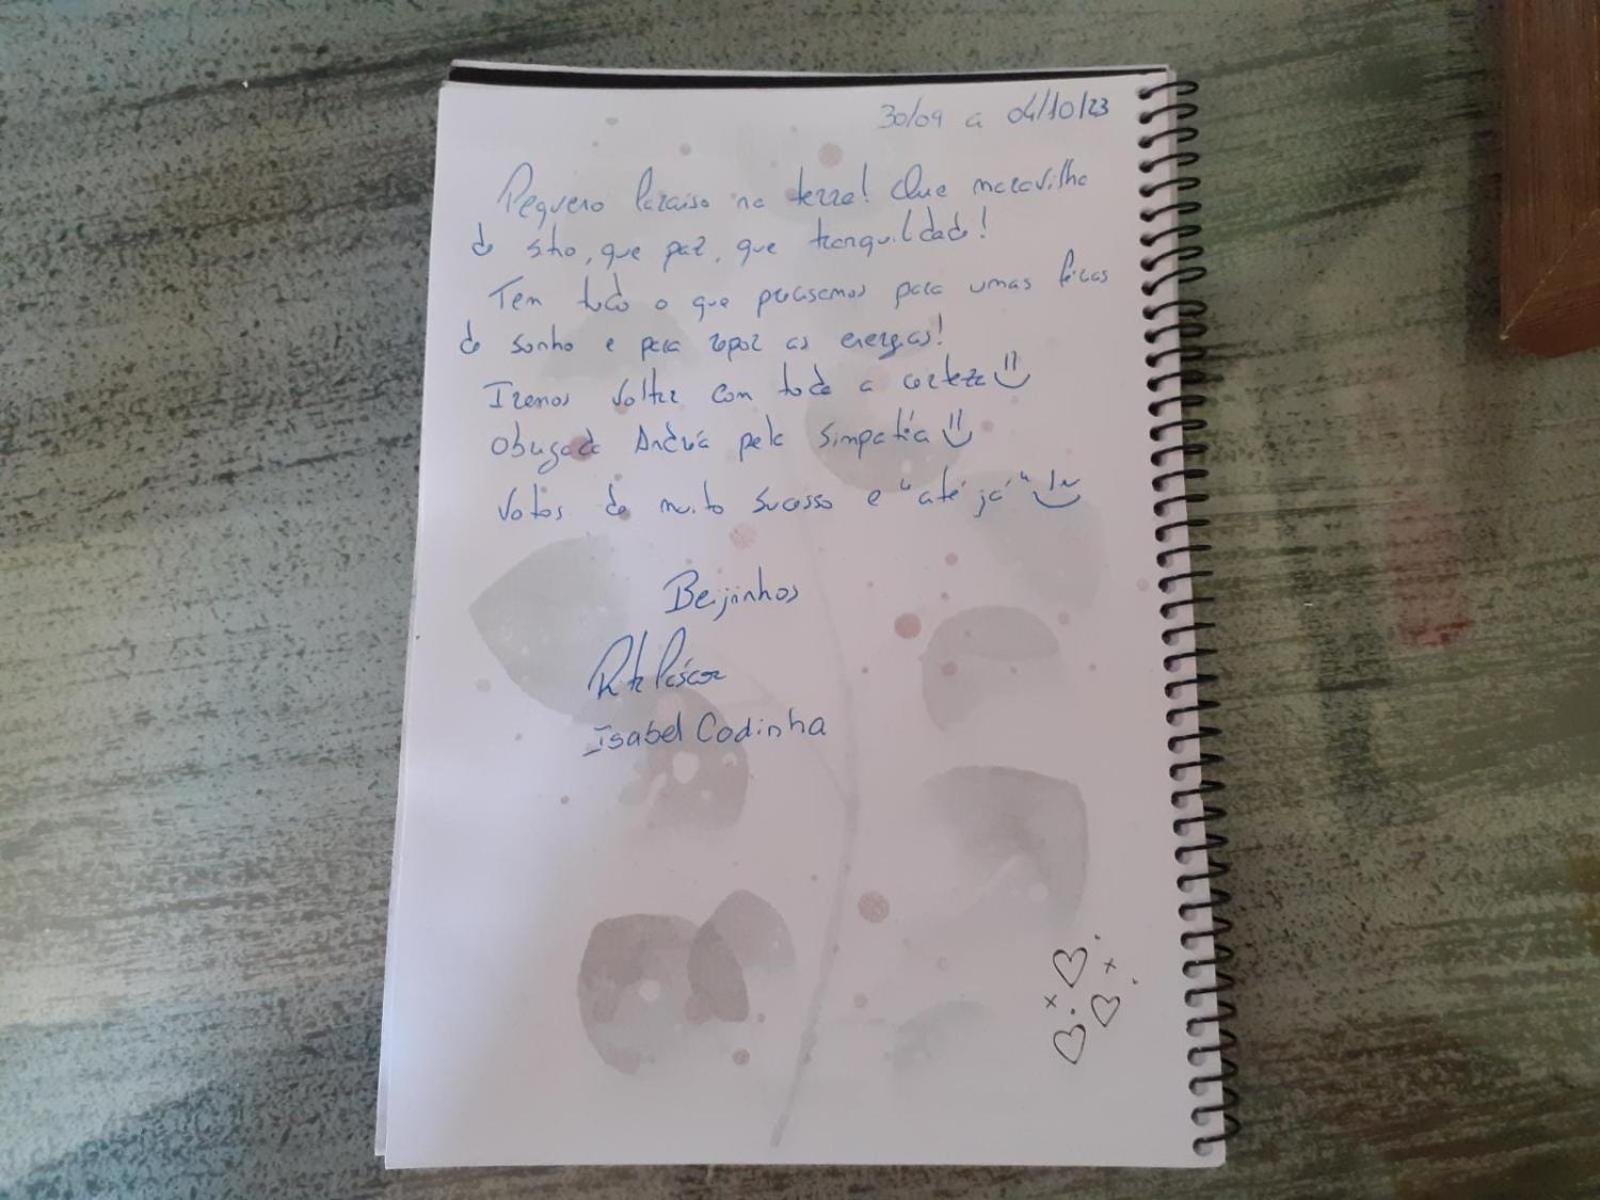 30/09 a 04/10/23
Pequeno Paraiso na terra! Que maravilha
de sitio, que paz, que tranquilidade!
Tem tudo o que precisamos para umas férias
de sonho e para repor as energias!
Iremos voltar com toda a certeza
Obrigada Andreia pela simpatia
Votos de muito sucesso e "até já"
Beijinhos
Rita Páscoa
Isabel Codinha